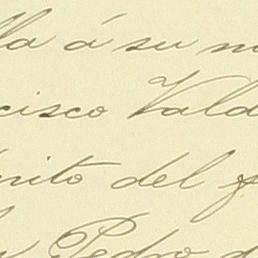 lla á su m
cisco Vald
ónito del f
Pedro d